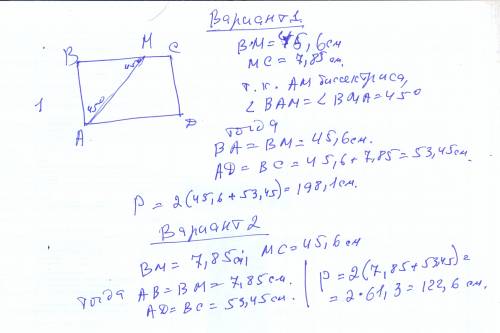 Вариант 1.
BM = 45,6 см
MC = 7,85 см.
т.к. AM биссектриса,
∠BAM = ∠BMA = 45°
тогда
BA = BM = 45,6 см.
AD = BC = 45,6 + 7,85 = 53,45 см.
P = 2(45,6 + 53,45) = 198,1 см.
B M C
45°
1
45°
A D
Вариант 2
BM = 7,85 см, MC = 45,6 см
тогда AB = BM = 7,85 см.
AD = BC = 53,45 см.
P = 2(7,85 + 53,45) =
= 2·61,3 = 122,6 см.